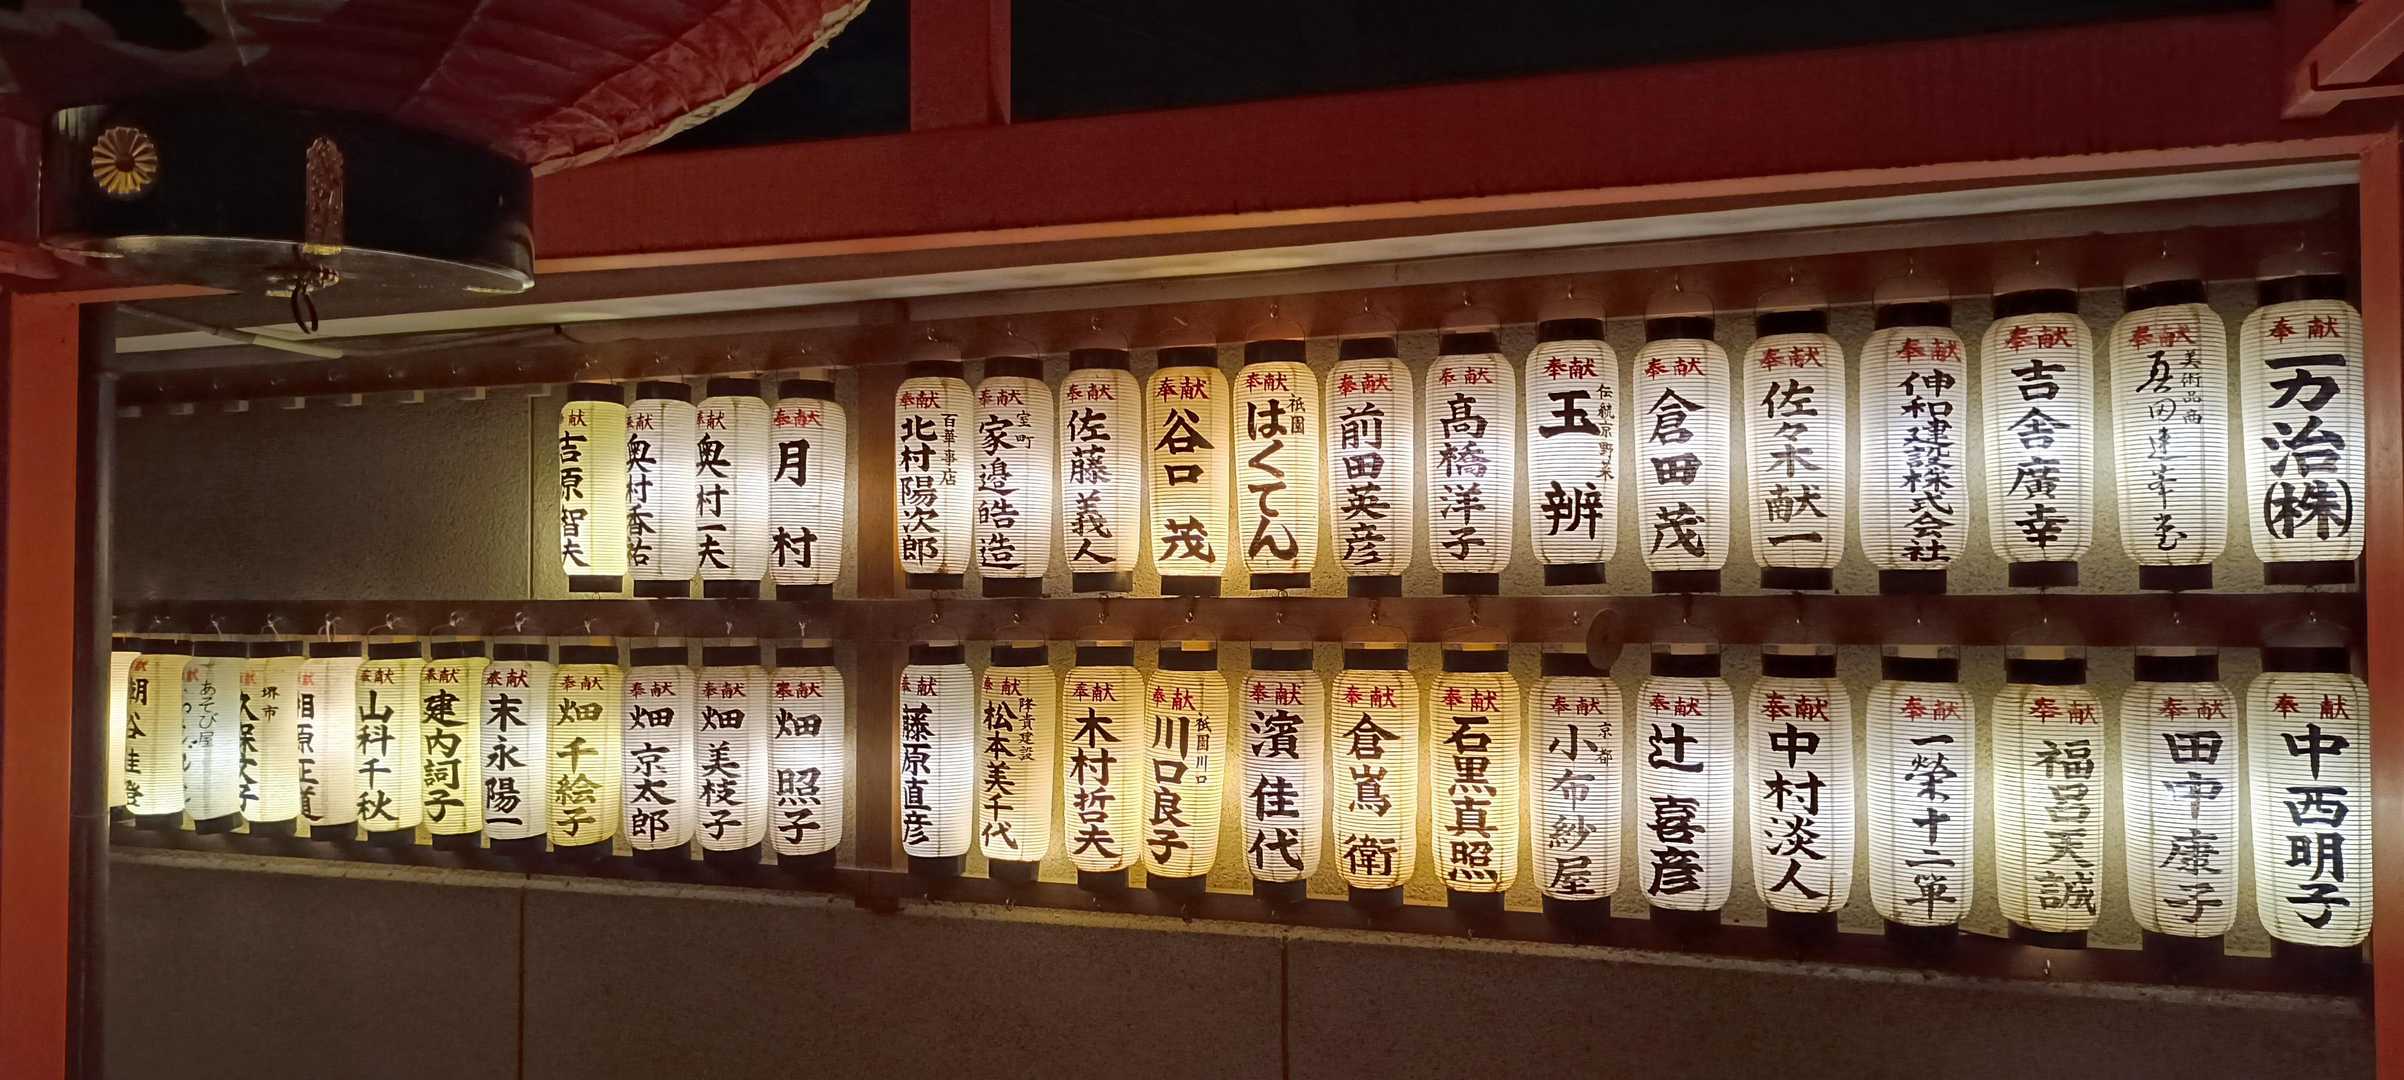 奉献 万治(株)
奉献 美術品商
奉献 吉舎廣幸
奉献 伸和建設株式会社
奉献 佐々木献一
奉献 倉田茂
奉献 伝統京野菜 玉辨
奉献 高橋洋子
奉献 前田英彦
奉献 祇園 はくてん
奉献 谷口茂
奉献 佐藤義人
奉献 室町 家邉皓造
奉献 北村陽次郎
奉献 月村
奉献 奥村一夫
奉献 奥村香祐
献 吉原智夫
奉献 中西明子
奉献 田中康子
奉献 福呂天誠
奉献 一榮十二
奉献 中村淡人
奉献 辻喜彦
奉献 京都 小布紗屋
奉献 石黒真照
奉献 倉嶌衛
奉献 濱佳代
奉献 祇園川口 川口良子
奉献 木村哲夫
奉献 隆貴建設 松本美千代
奉献 藤原直彦
奉献 畑照子
奉献 畑美枝子
奉献 畑京太郎
奉献 畑千絵子
奉献 末永陽一
奉献 建内詞子
奉献 山科千秋
献 原正道
堺市
献 あそび屋
献